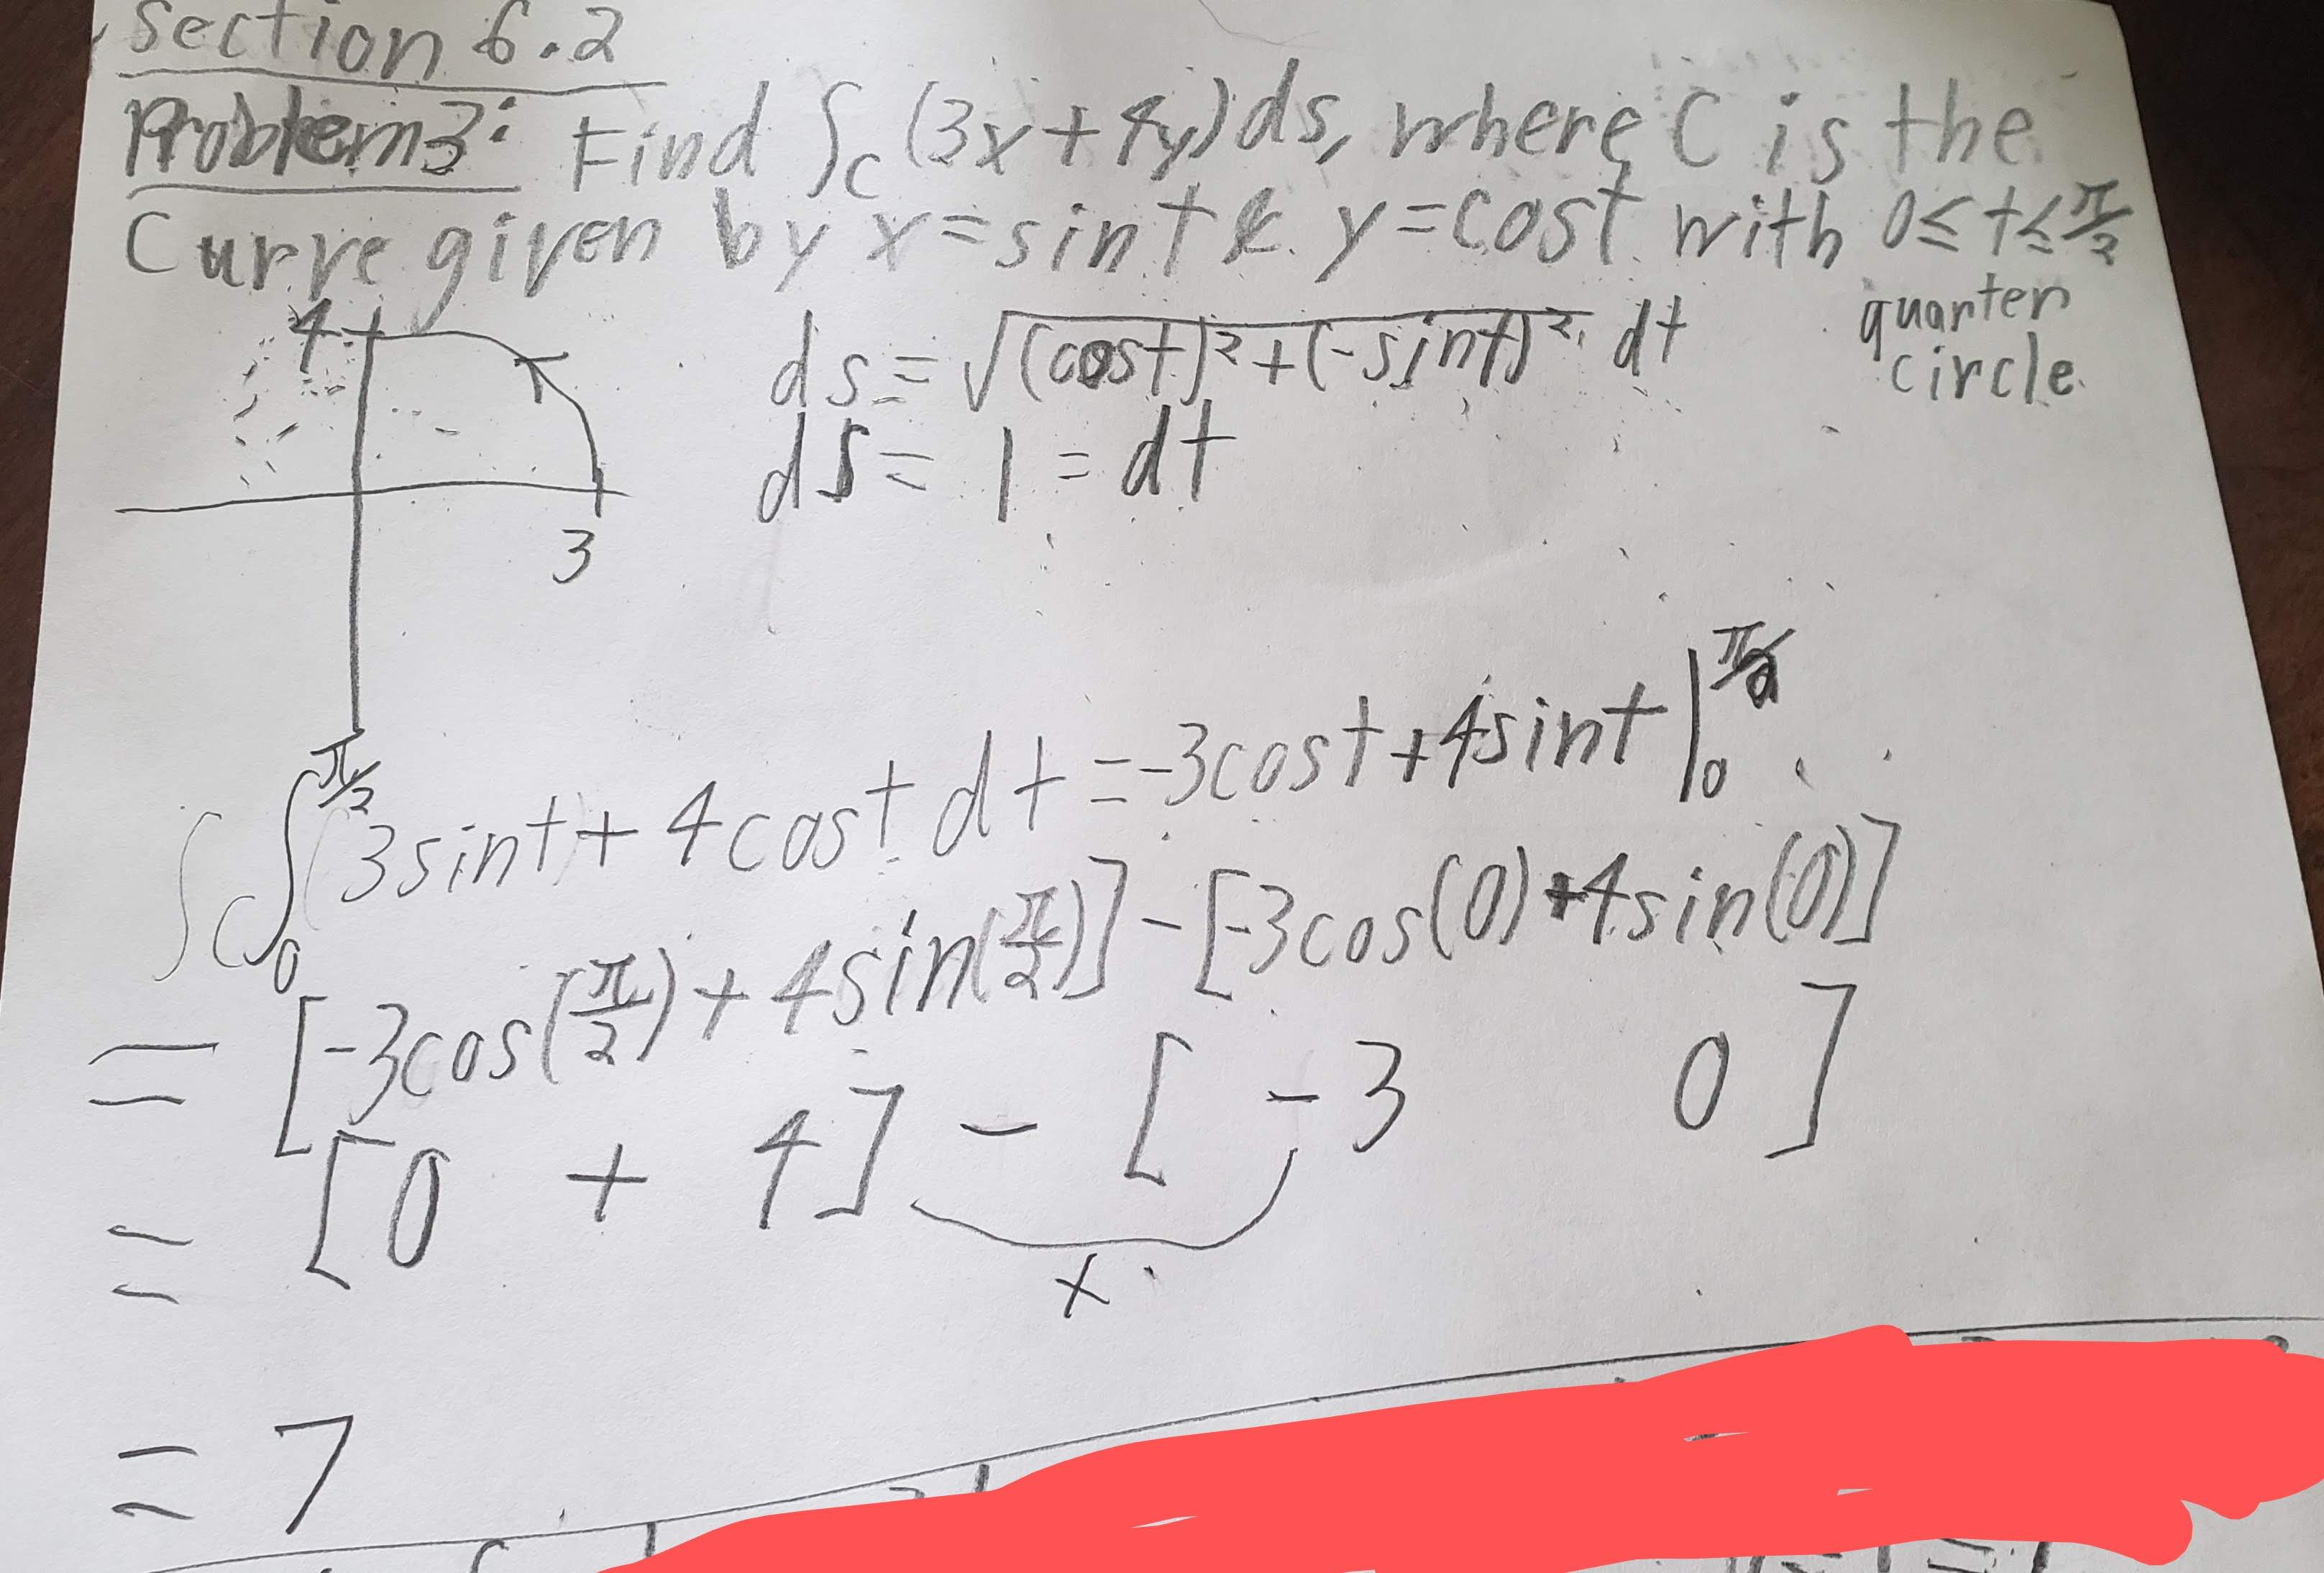 Section 6.2
Problem 3: Find ∫_C (3x+4y)ds, where C is the
Curve given by x=sint & y=cost with 0≤t≤π/2
quarter
circle
4
3
ds=√((cost)²+(-sint)²) dt
ds=1=dt
∫_C ∫_0^{π/2} (3sint+4cost dt=-3cost+4sint |_0^{π/2}
=[-3cos(π/2)+4sin(π/2)]-[-3cos(0)+4sin(0)]
=[0+4]-[-3 0]
+
=7